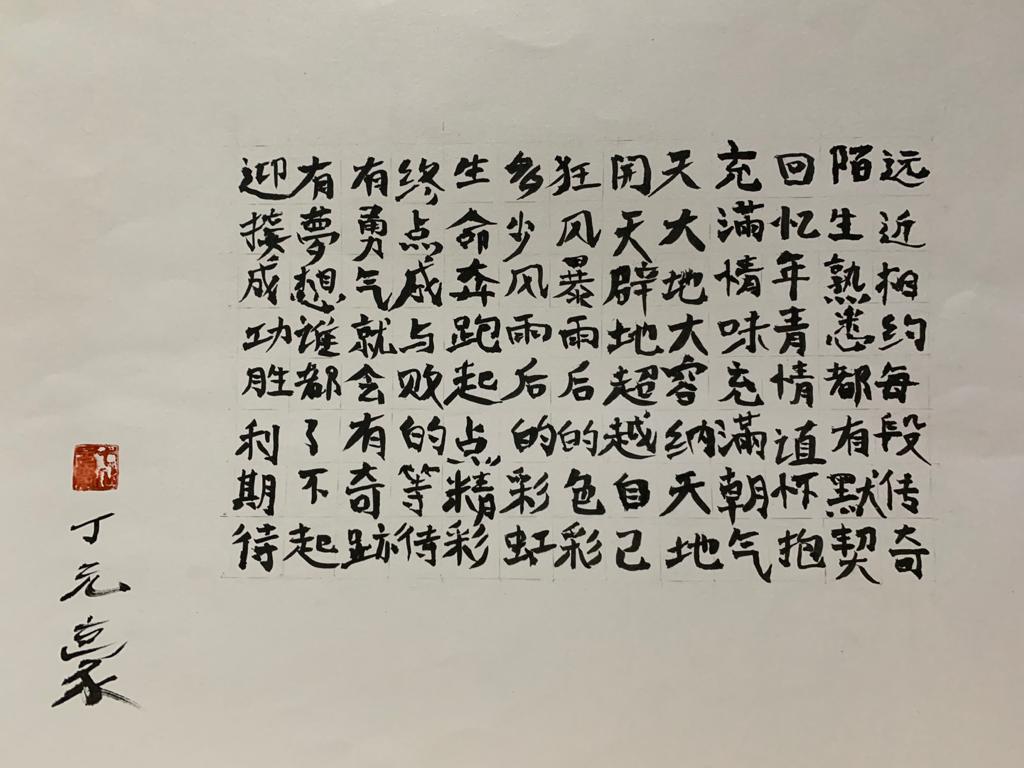 远近相约每段传奇
陌生熟悉都有默契
回忆年青情谊怀抱
充滿情味充滿朝气
天大地大容纳天地
開天辟地超越自己
狂风暴雨后的色彩
多少风雨后的彩虹
生命奔跑起点精彩
终点成与败的等待
有勇气就会有奇跡
有夢想谁都了不起
迎成功胜利期待
丁元豪